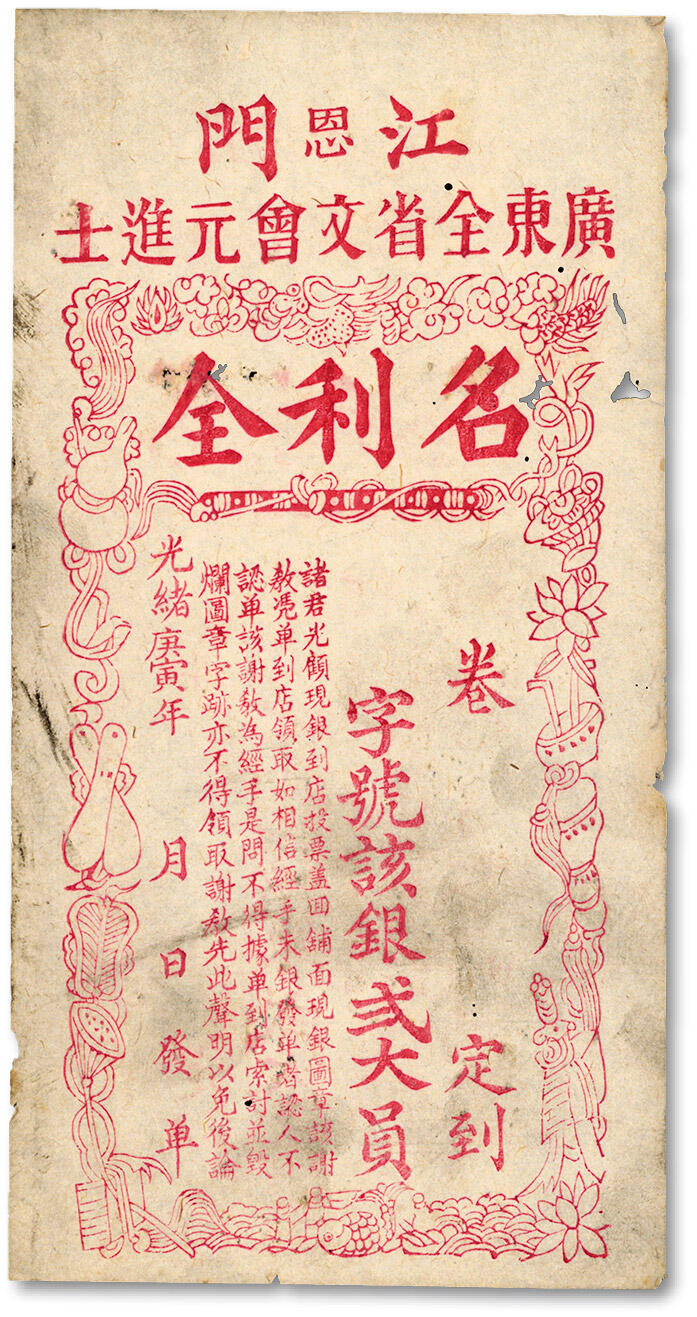 江恩門
廣東全省文會元進士
名利全
卷 定到
字號該銀弍大員
諸君光顧現銀到店投票盖回舖面現銀圖章該謝
敎憑单到店領取如相信經手未銀發单者認人不
認单該謝敎為經手是問不得據单到店索討並毀
爛圖章字跡亦不得領取謝敎先此聲明以免後論
光緒庚寅年 月 日 發 单